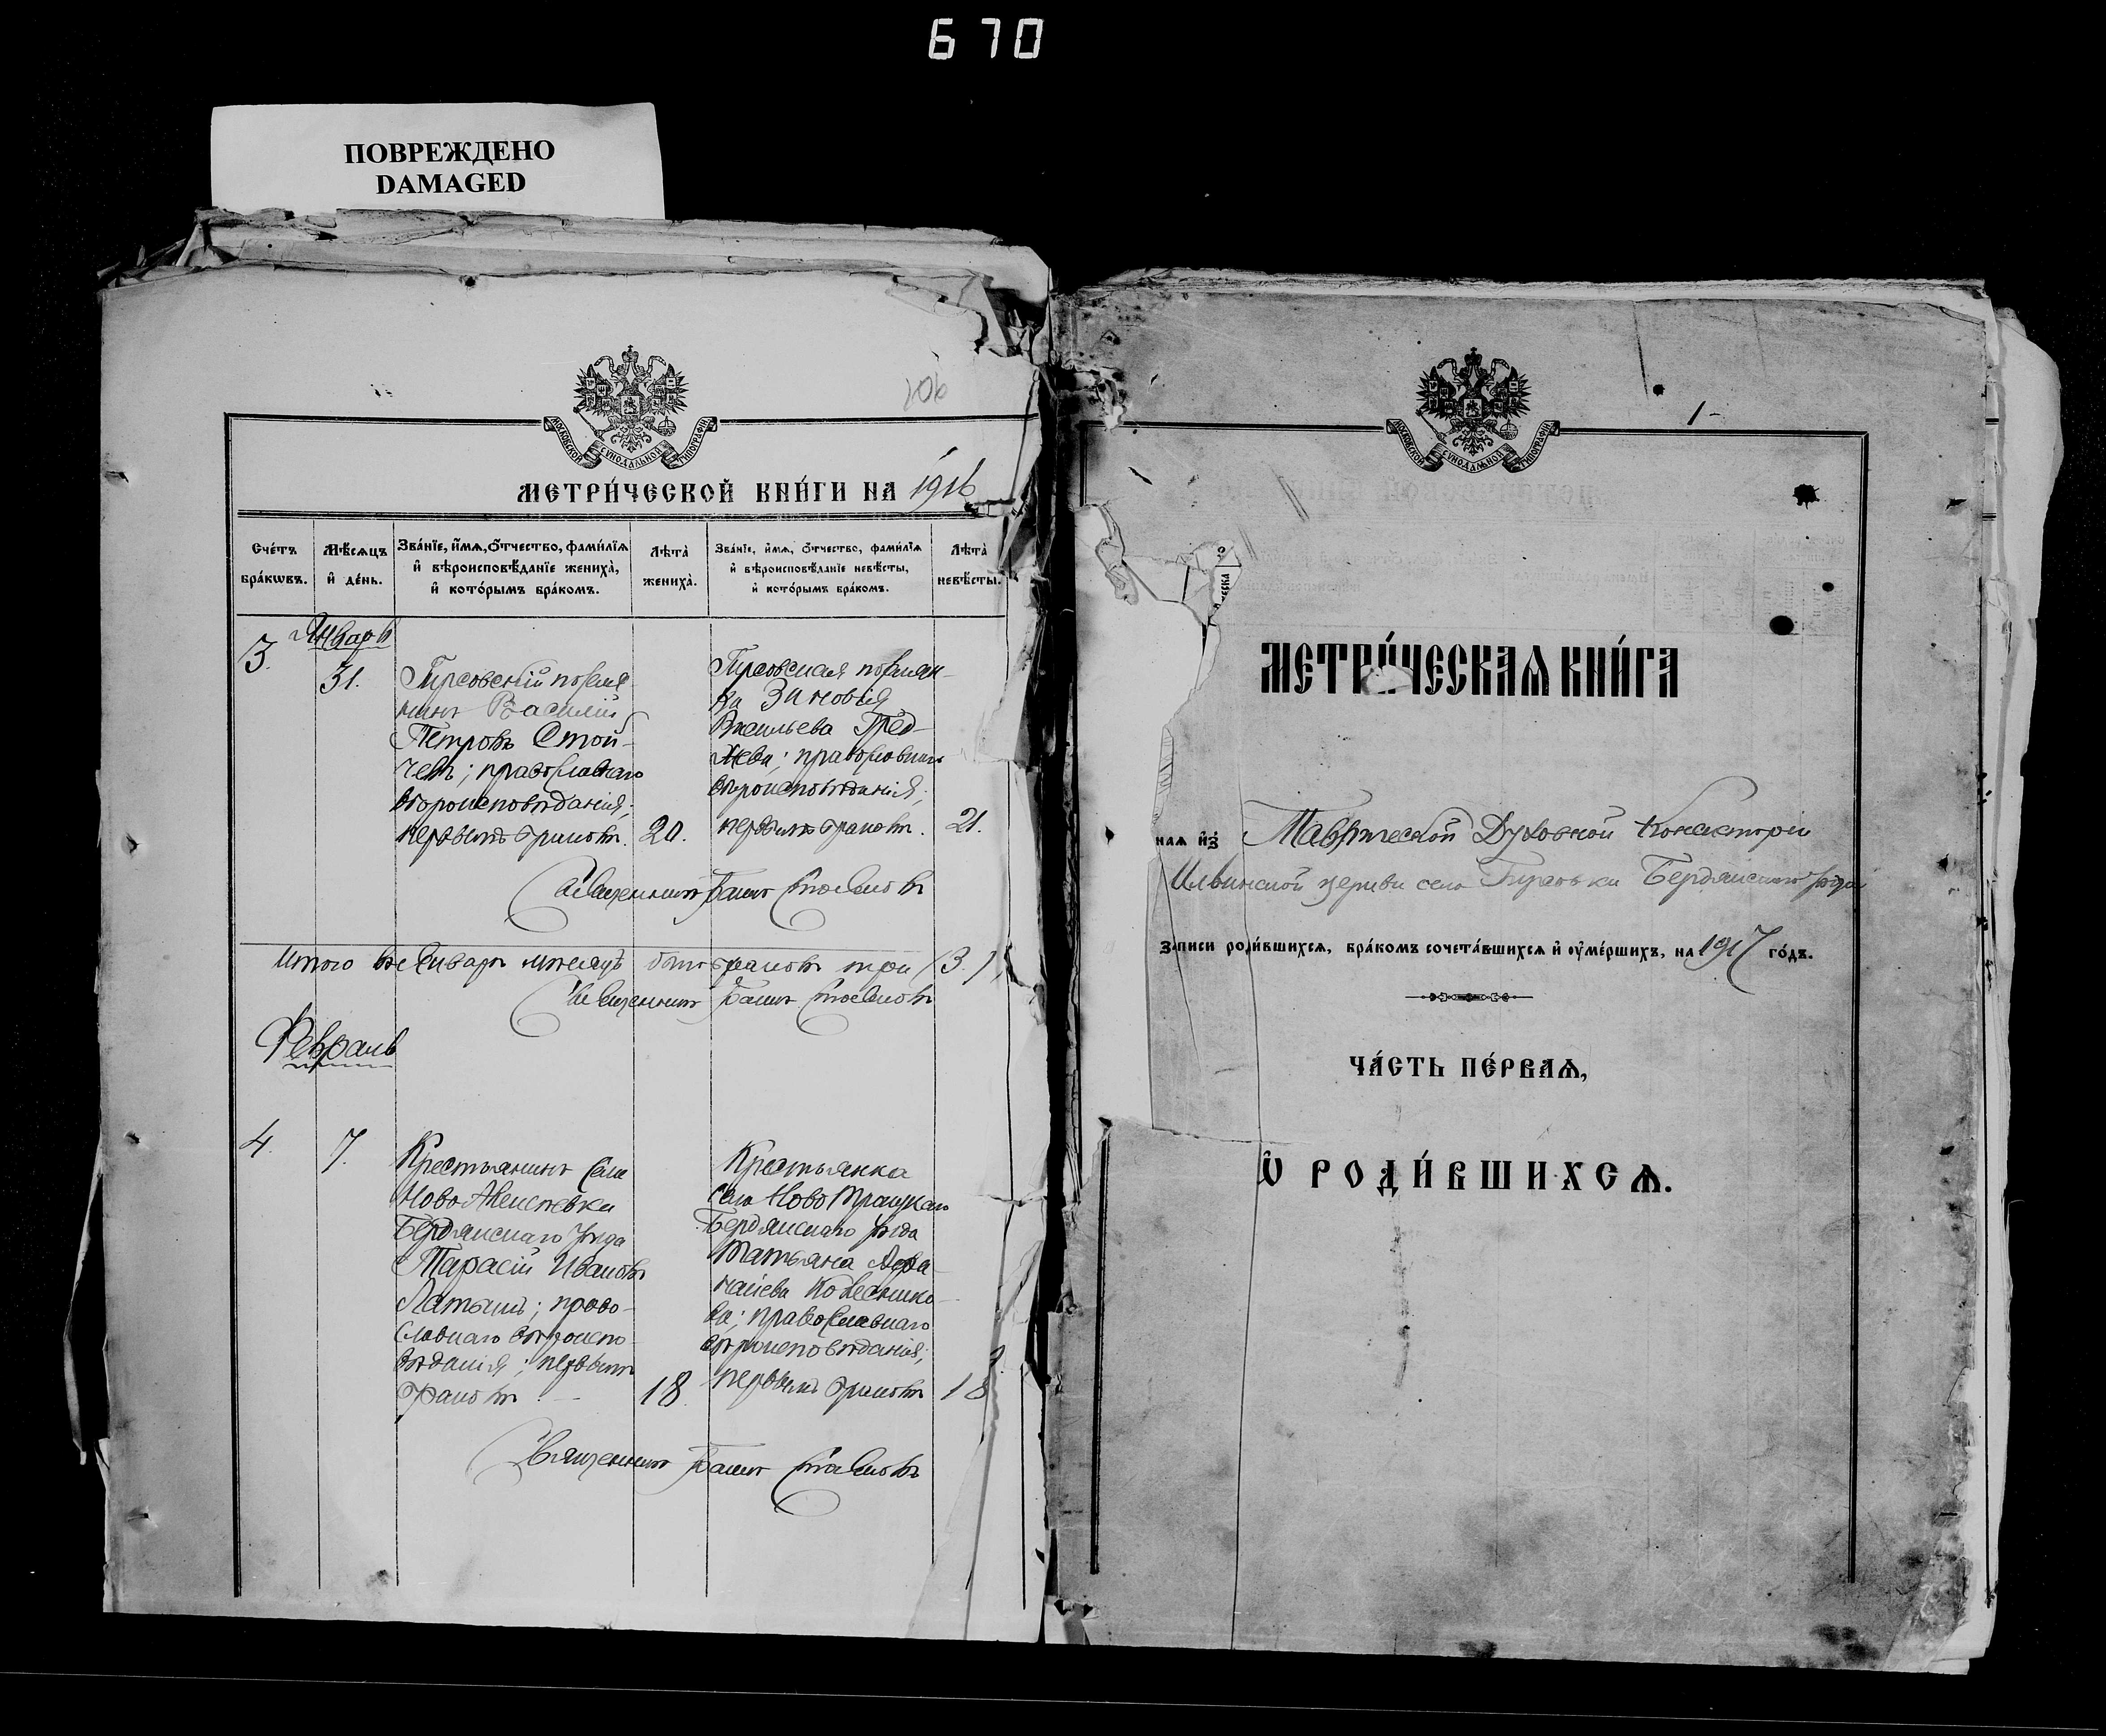 670
ПОВРЕЖДЕНО
DAMAGED
106
МОСКОВСКОЙ СѴНОДАЛЬНОЙ ТИПОГРАФІИ
МЕТРИ́ЧЕСКОЙ КНИ́ГИ НА 1916
Сче́тъ бра́кѡвъ.
Мѣ́сѧцъ и҆ де́нь.
Зва́нїе, и҆́мѧ, ѻ҆́тчество, фами́лїѧ и҆ вѣроисповѣ́данїе жениха̀, и҆ кото́рымъ бра́комъ.
Лѣта̀ жениха̀.
Зва́нїе, и҆́мѧ, ѻ҆́тчество, фами́лїѧ и҆ вѣроисповѣ́данїе невѣ́сты, и҆ кото́рымъ бра́комъ.
Лѣта̀ невѣ́сты.
Январь
3.
31.
Гирсовскій поселя
нинъ Василій
Петровъ Стой-
чевъ; православнаго
вѣроисповѣданія;
первымъ бракомъ.
20.
Гирсовская поселян-
ка Зиновія
Васильева Гред-
жева; православнаго
вѣроисповѣданія;
первымъ бракомъ.
21.
Священникъ
Итого въ Январѣ мѣсяцѣ было браковъ три (3.)
Священникъ
Февраль
4.
7.
Крестьянинъ села
Ново Алексѣевки
Бердянскаго уѣзда
Тарасій Ивановъ
Латышъ; право-
славнаго вѣроиспо-
вѣданія; первымъ
бракомъ. —
18.
Крестьянка
села Ново Троицкаго
Бердянскаго уѣзда
Татьяна Афа-
насіева Колеснико-
ва; православнаго
вѣроисповѣданія;
первымъ бракомъ
18
Священникъ
1-
МОСКОВСКОЙ СѴНОДАЛЬНОЙ ТИПОГРАФІИ
МЕТРИ́ЧЕСКАѦ КНИ́ГА
наѧ и҆з̾ Таврической Духовной Консисторіи
Ильинской церкви села Гирсовки Бердянскаго уѣзда
Записи роди́вшихсѧ, бра́комъ сочета́вшихсѧ и҆ ᲂу҆ме́ршихъ, на 1917 го́дъ.
ЧА́СТЬ ПЕ́РВАѦ,
Ѽ РОДИ́ВШИХСѦ.